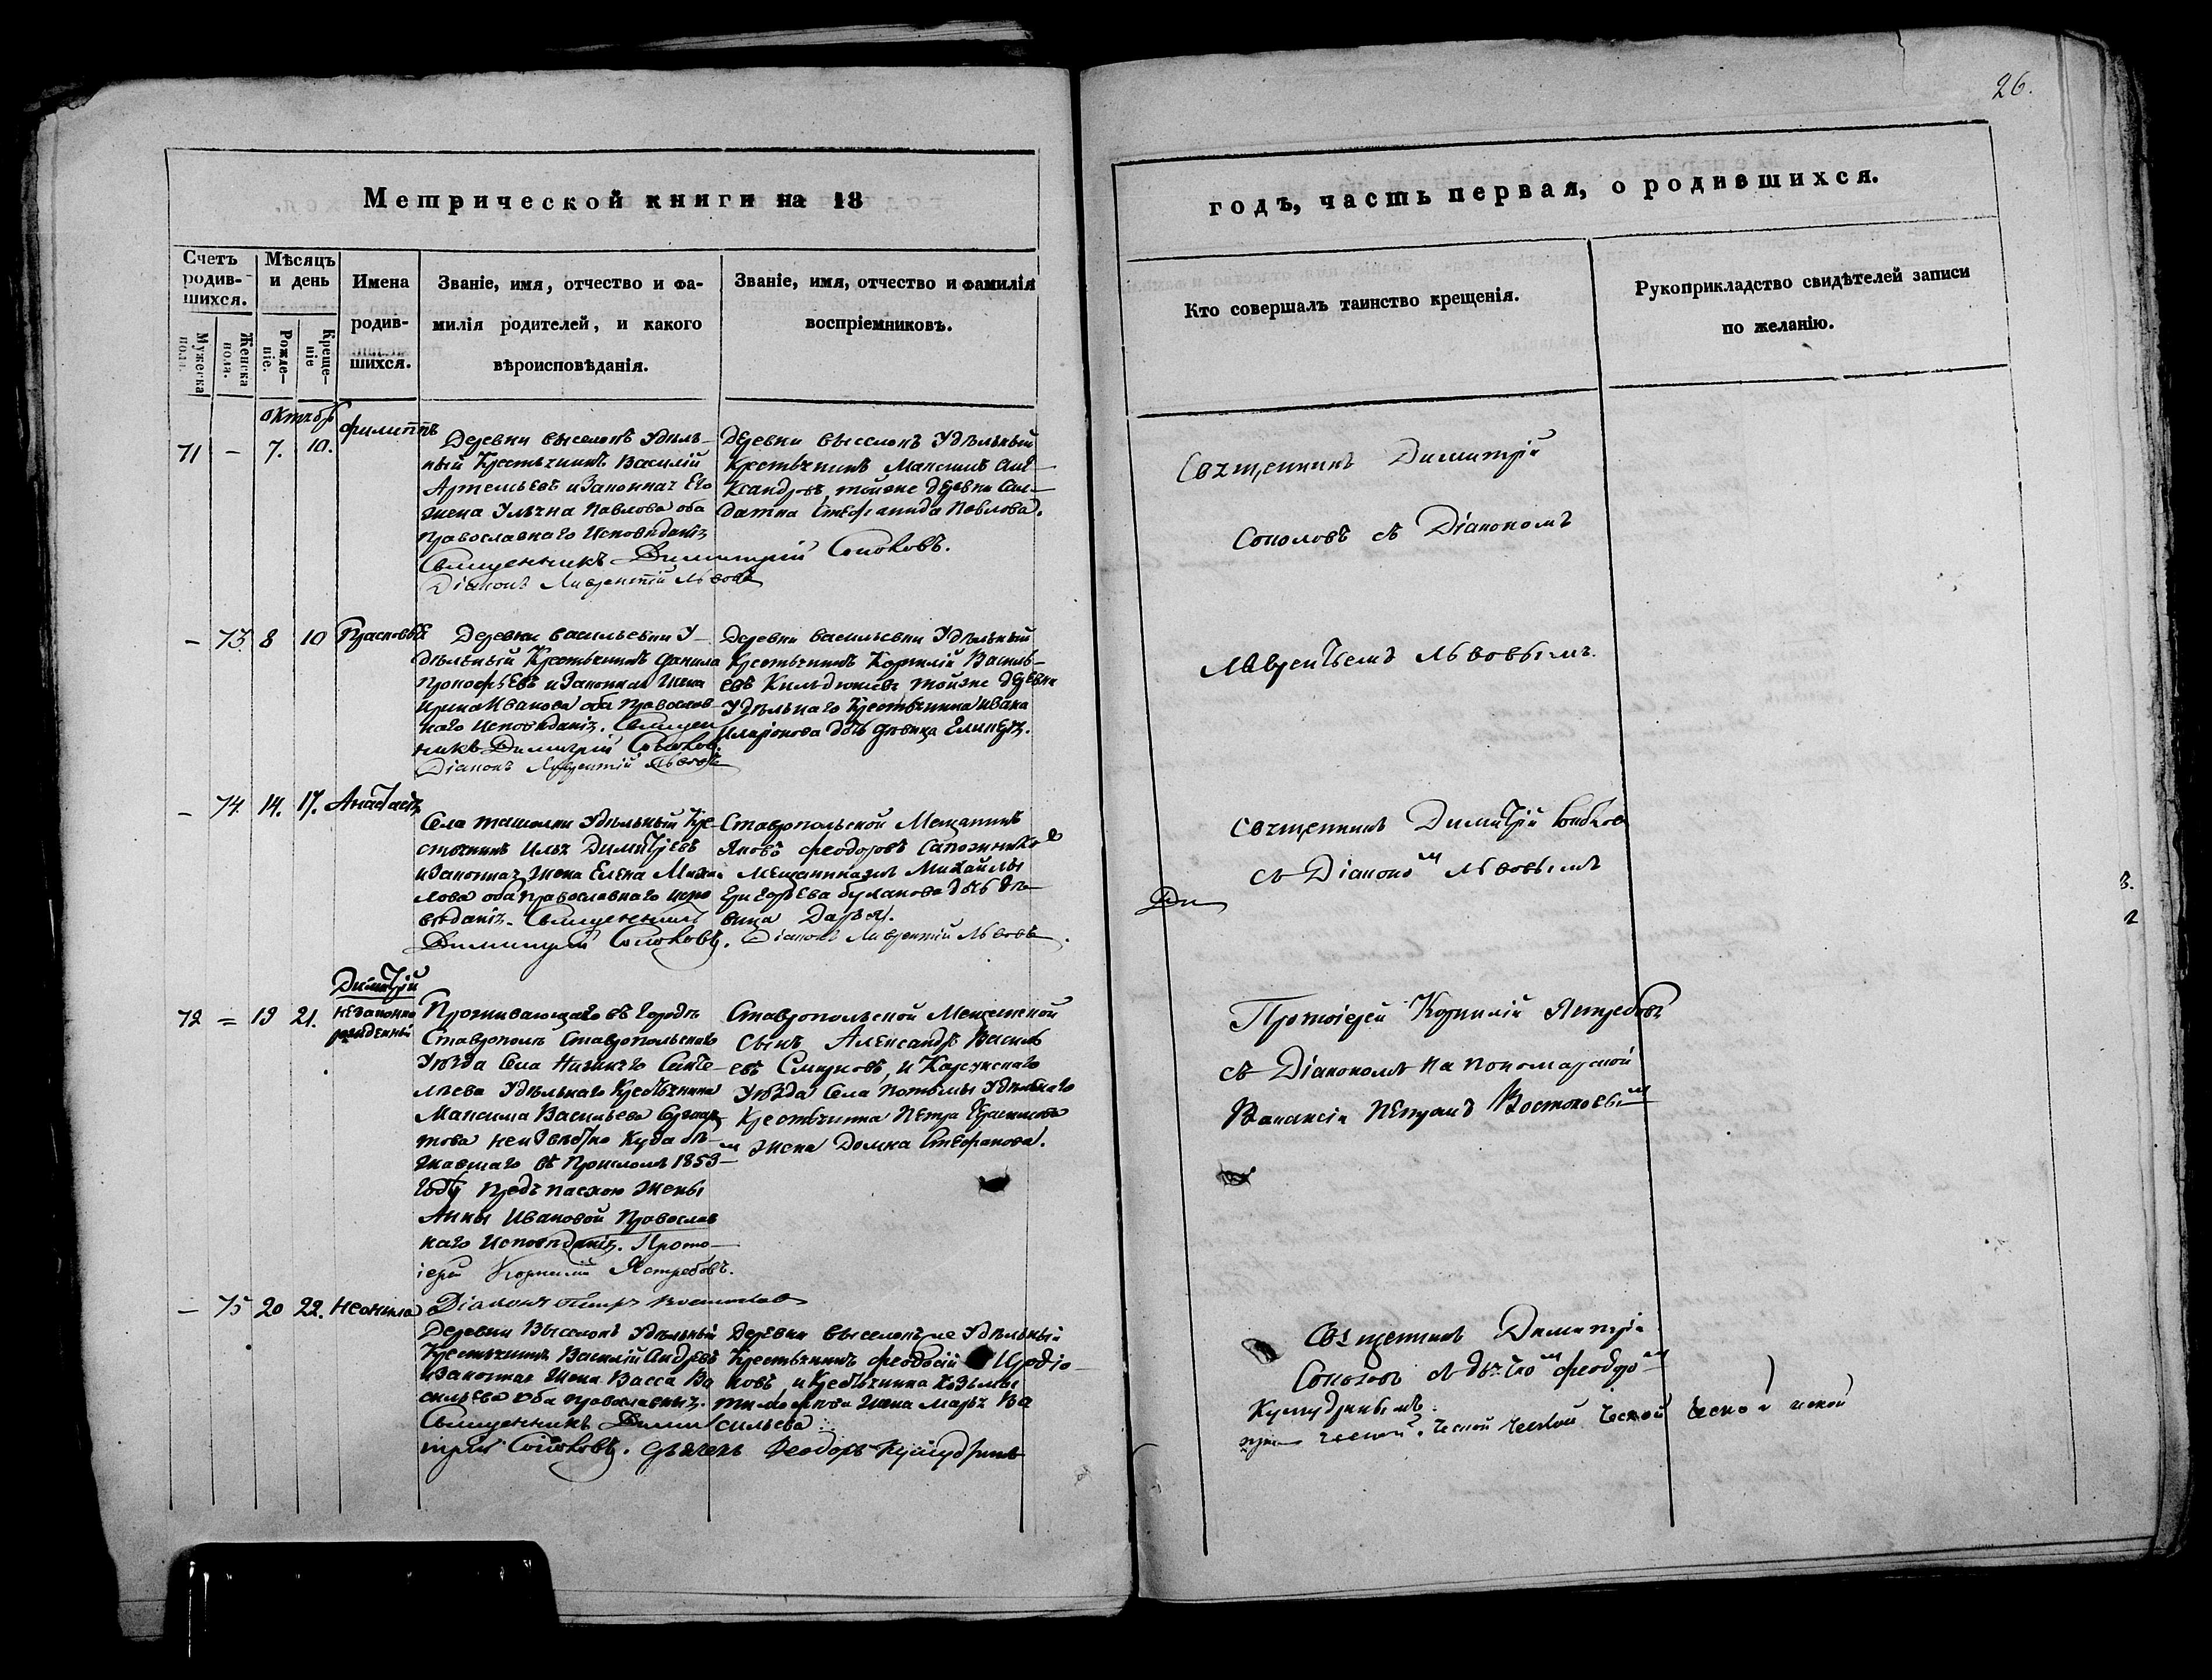 26.
Метрической книги на 18
годъ, часть первая, о родившихся.
Счетъ родив-шихся.
Мужеска пола.
Женска пола.
Мѣсяцъ и день
Рожде-ніе.
Креще-ніе
Имена родив-шихся.
Званіе, имя, отчество и фа-
милія родителей, и какого
вѣроисповѣданія.
Званіе, имя, отчество и фамилія
воспріемниковъ.
Кто совершалъ таинство крещенія.
Рукоприкладство свидѣтелей записи
по желанію.
октябр
71 – 7. 10. Филиппъ
Деревни выселокъ Удѣль-
ный Крестьянинъ Василій
Артемьевъ и Законная Его
жена Улья на Павлова оба
Православнаго Исповѣданія
Священникъ Димитрій Соколовъ.
Діаконъ Лаврентій Львовъ
Деревни выселокъ Удѣльный
Крестьянинъ Максимъ Але-
ксандровъ, тойже деревни Сол-
датка Стефанида Павлова.
Священникъ Димитрій
Соколовъ съ Діакономъ
Лаврентьемъ Львовымъ.
– 73. 8 10 Прасковья
Деревни васильевки У-
дѣльный Крестьянинъ Данила
Прокофьевъ и Законная жена
Ирина Иванова оба Православ-
наго Исповѣданія. Священ
никъ Димитрій Соколовъ.
Діаконъ Лаврентій Львовъ
Деревни васильевки Удѣльный
Крестьянинъ Корнилій Василь-
евъ тойже деревни
Удѣльнаго Крестьянина Ивана
Иларіонова дочь дѣвица
– 74. 14. 17. Анастасія
Села ташолки Удѣльный Кре-
стьянинъ Илья Димитріевъ
и Законная жена Елена Михаи
лова оба Православнаго испо
вѣданія. Священникъ
Димитрій Соколовъ.
Ставропольской Мещанинъ
Яковъ Феодоровъ Сапожниковъ
Михайлы
Григорьева дочь дѣ-
вица Дарья.
Діаконъ Лаврентій Львовъ.
Священникъ Димитрій Соколовъ
съ Діакономъ Львовымъ
Ди
3.
2
72 = 19 21. Димитрій
незаконно
рожденный
Проживающаго въ Городѣ
Ставрополѣ Ставропольскаго
Уѣзда Села Нижняго Санче-
лѣева Удѣльнаго Крестьянина
Максима Васильева
това неизвѣстно куда бѣ-
жавшаго въ прошломъ 1853м
году предъ пасхою жены
Анны Ивановой Православ
наго Исповѣданія. Прото-
іерей Корнилій Ястребовъ.
Діаконъ Петръ Востоковъ
Ставропольской Мещанской
сынъ Александръ Василь
евъ Смирновъ, и Карсунскаго
Уѣзда Села Потьмы Удѣльнаго
Крестьянина Петра
жена Домна Стефанова.
Протоіерей Корнилій Ястребовъ
съ Діакономъ на пономарской
Вакансіи Петромъ Востоковымъ
– 75 20 22. Неонила
Деревни Выселокъ Удѣльный
Крестьянинъ Василій Андреевъ
и Законная жена Васса Ва
сильева оба православныя.
Священникъ Дими
трій Соколовъ. Дьячекъ Феодоръ
Деревни выселокъ Удѣльный
Крестьянинъ Феодосій Иродіо-
новъ, и Крестьянина Козьмы
Тимофеева жена Марья Ва
сильева
Священникъ Димитрій
Соколовъ съ дьячкомъ Феодоромъ
ческой ческой ческой